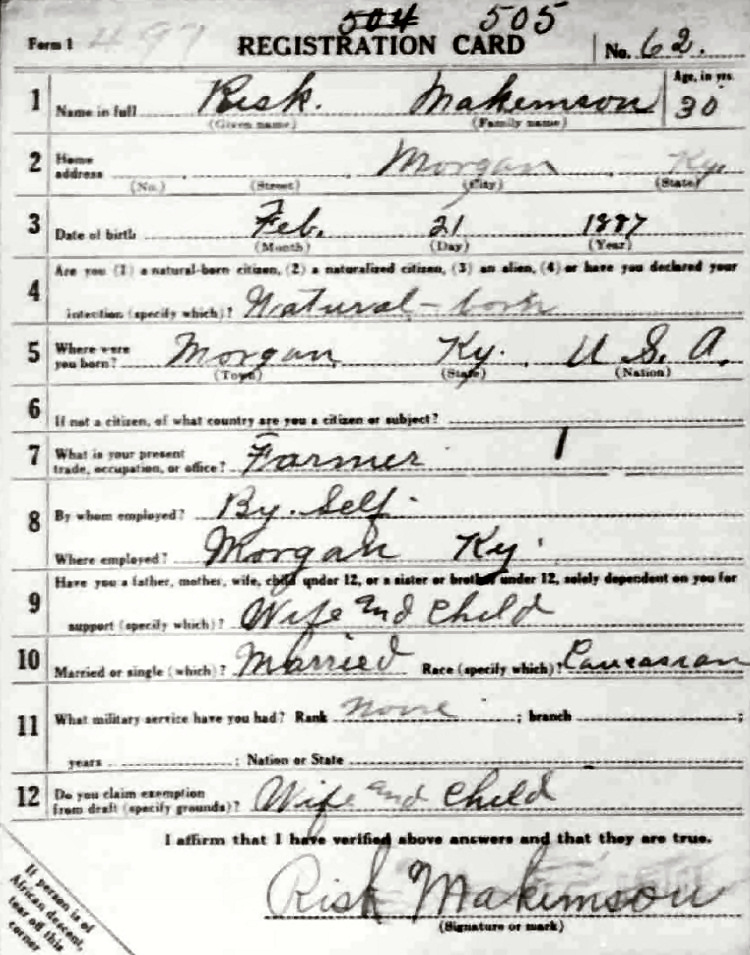 504 505
Form 1 497 REGISTRATION CARD No. 62.
1 Name in full Risk. Makemson Age, in yrs. 30
(Given name) (Family name)
2 Home address Morgan Ky.
(No.) (Street) (City) (State)
3 Date of birth Feb. 21 1887
(Month) (Day) (Year)
4 Are you (1) a natural-born citizen, (2) a naturalized citizen, (3) an alien, (4) or have you declared your
intention (specify which)? Natural-born
5 Where were you born? Morgan Ky. U.S.A.
(Town) (State) (Nation)
6 If not a citizen, of what country are you a citizen or subject?
7 What is your present trade, occupation, or office? Farmer
8 By whom employed? By. Self.
Where employed? Morgan Ky.
9 Have you a father, mother, wife, child under 12, or a sister or brother under 12, solely dependent on you for
support (specify which)? Wife and Child
10 Married or single (which)? Married Race (specify which)? Caucasian
11 What military service have you had? Rank none ; branch ;
years ; Nation or State
12 Do you claim exemption from draft (specify grounds)? Wife and Child
I affirm that I have verified above answers and that they are true.
Risk Makemson
(Signature or mark)
If person is of
African descent,
tear off this
corner